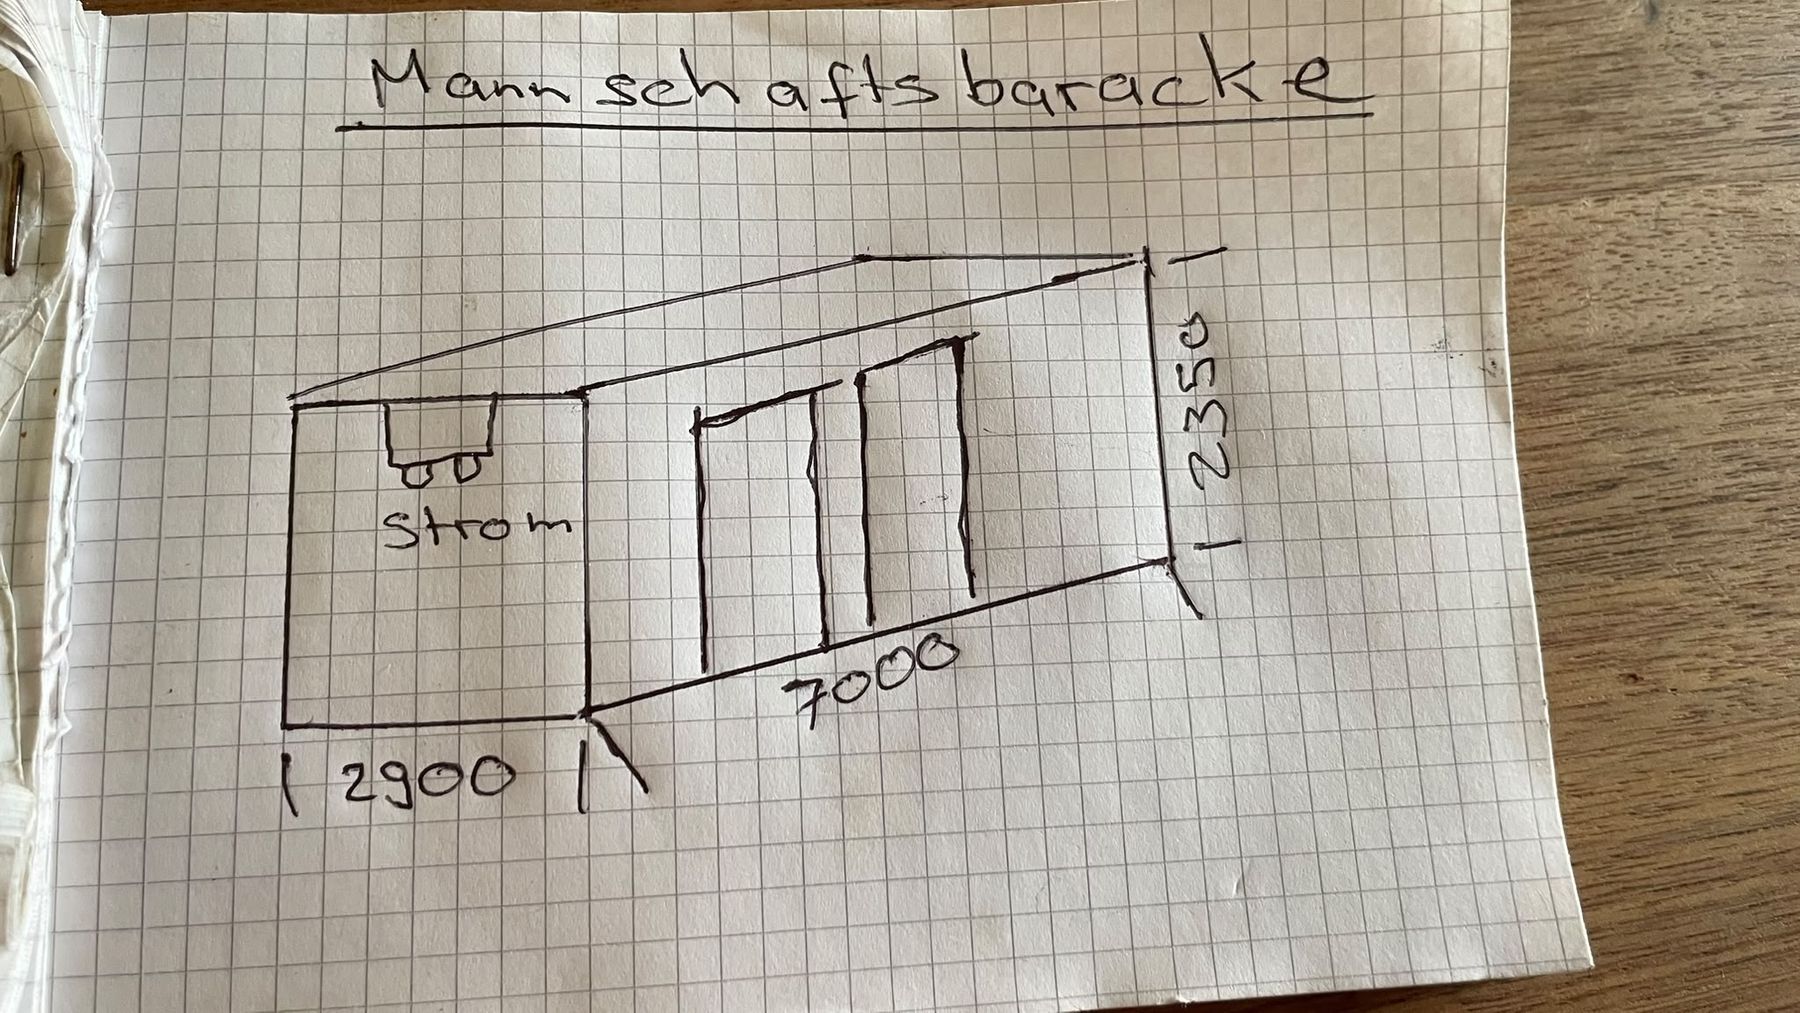 Mannschaftsbaracke
2350
Strom
7000
2900